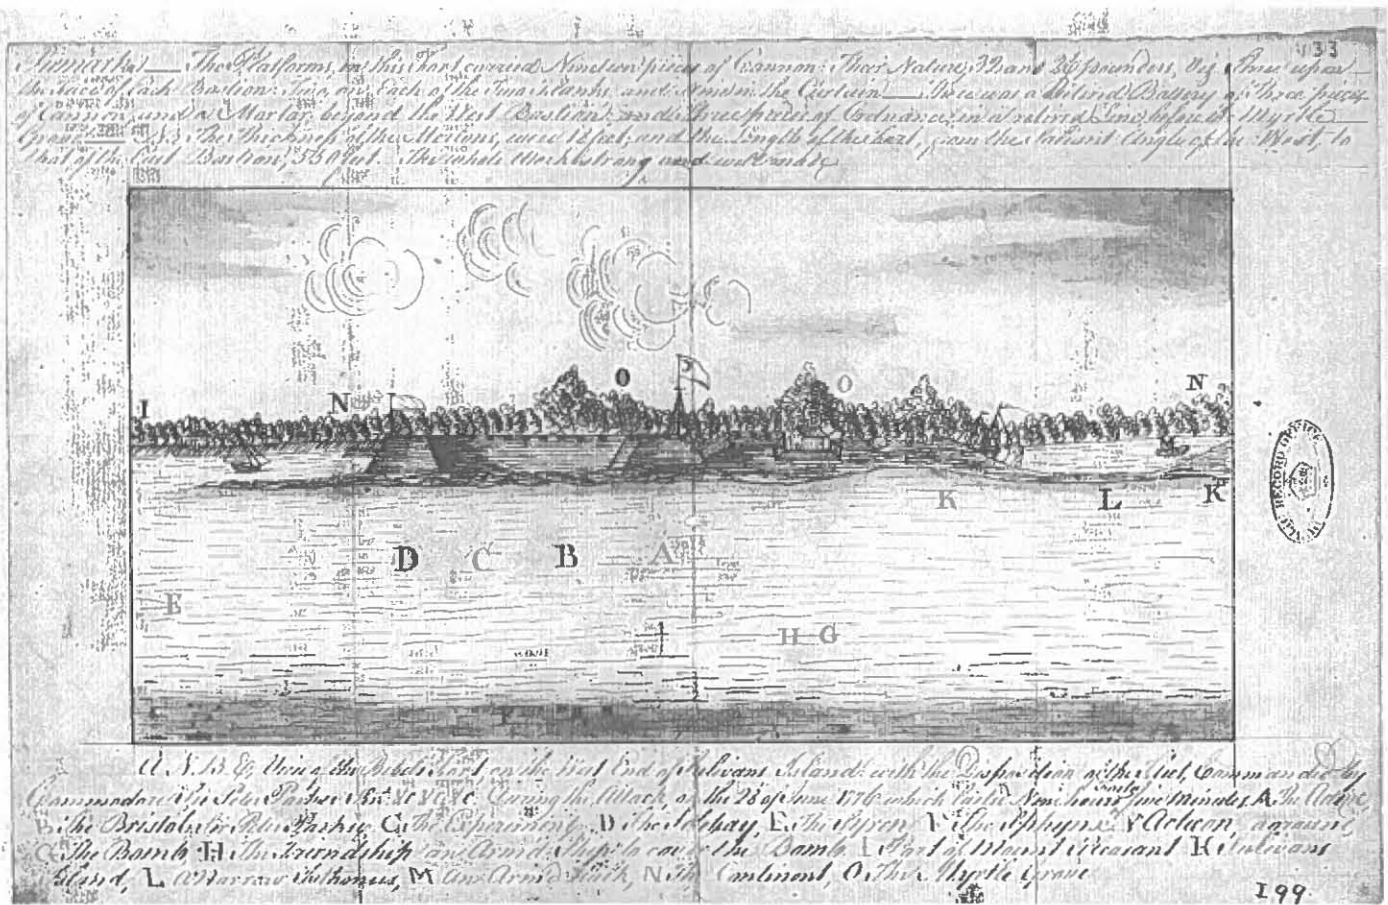 433
Remarks — The Platforms, in this Fort carried Nineteen pieces of Cannon: Their Nature, 32 and 26 pounders, Viz. Three upon
the Face of Each Bastion: Two, on Each of the Two Flanks and in the Curtain — There was a Battery of Three pieces
of Cannon, and a Mortar, beyond the West Bastion: and Three pieces of Ordnance, in a Line before the Myrtle —
Grove — The Thickness of the Merlons, were 18 feet, and the Length of the Fort, from the Saliant Angle of the West, to
that of the East Bastion, 350 feet. The whole Work strong and
O
N
I
O
N
K
L
K
D
C
B
A
E
H
G
F
PUBLIC RECORD OFFICE
A N.B.E. View of the Rebels Fort on the West End of Sulivans Island: with the Disposition of the Fleet, Commanded by
Commodore Sir Peter Parker &c &c &c During the Attack, on the 28 of June 1776 which lasted Nine hours five Minutes, A, The Active,
B, the Bristol, Sir Peter Parker C, The Experiment, D The Solebay, E, The Syren, F The Sphynx & Acteon, aground,
G The Bomb H, The Friendship an Armed Ship to cover the Bomb I Part of Mount Pleasant K Sulivans
Island, L A Narrow Isthmus, M an Arm'd N The Continent, O The Myrtle Grove
199.